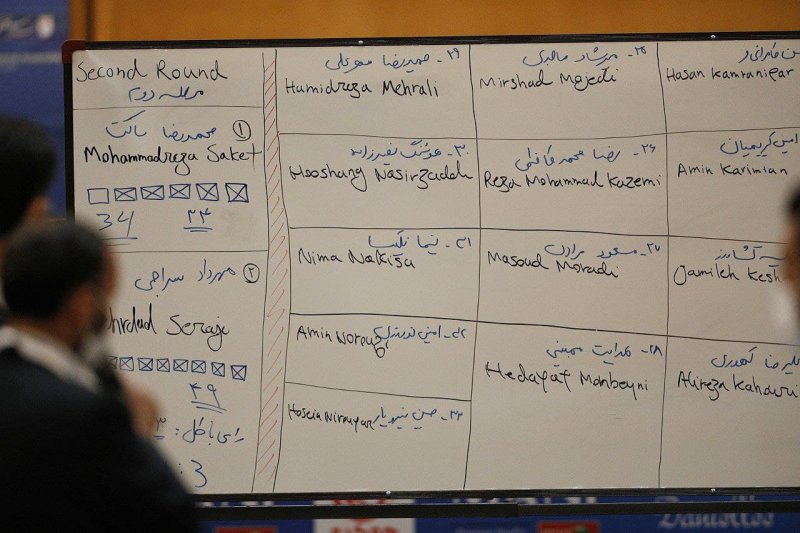 Second Round
مرحله دوم
محمدرضا ساکت ①
Mohammadreza Saket
34 ۳۴
مهرداد سراجی ②
hrdad Seraji
۴۹
رای باطل: ۳
: 3
۲۹- حمیدرضا مهرعلی
Hamidreza Mehrali
۳۰- هوشنگ نصیرزاده
Hooshang Nasirzadeh
۳۱- نیما نکیسا
Nima Nakisa
Amin Noroug
Hosein Nirouyar
۲۵- میرشاد ماجدی
Mirshad Majedi
۲۶- رضا محمد کاظمی
Reza Mohammad Kazemi
۲۷- مسعود مرادی
Masoud Moradi
۲۸- هدایت ممبینی
Hedayat Mombeyni
Hasan Kamranifar
امین کریمیان
Amin Karimian
Jamileh Kesh
علیرضا کهوری
Alireza Kahouri